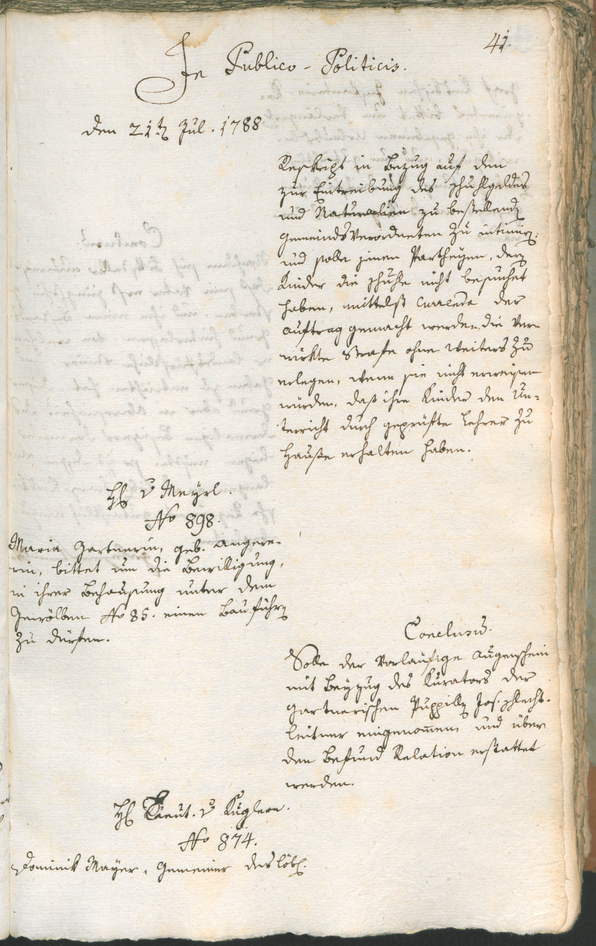 41.
In Publico-Politicis.
den 21t Jul. 1788
Reskript in Bezug auf den
zur Eintreibung des Schuhlgeldes
und Naturalien zu bestellend
gemeinds Verordneten zu intimir:
und solle jenen Partheyen, den
Kinder die Schuhle nicht besuchet
haben, mittelst Currenda der
Auftrag gemacht werden, die ver=
wirkte Strafe ohne weiters zu
erlegen, wenn sie nicht erweisen
würden, daß ihre Kinder den Un=
terricht durch geprüfte Lehrer zu
Hause erhalten haben.
H v Meyrl.
No 898.
Maria Gartnerin, geb. Angere=
rin, bittet um die Bewilligung,
in ihrer Behausung unter dem
Gewölben No 85. einen Bau führen
zu dürfen.
Conclusum.
Solle der vorläufige Augenschein
mit Beyzug des Kurators der
Gartnerischen Puppillen Jos. Schlecht=
leitner eingenommen, und über
den Befund Relation erstattet
werden.
H Lieut. v Kuglern.
No 874.
Dominik Mayer, Gemeiner des löbl.